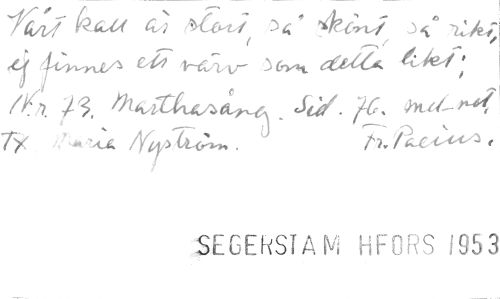 Vårt kall är stort, så skönt, så rikt,
ej finnes ett värv som detta likt;
N:r 73. Marthasång. Sid. 76. med not.
Tx. Maria Nyström. Fr. Pacius.
SEGERSTAM HFORS 1953